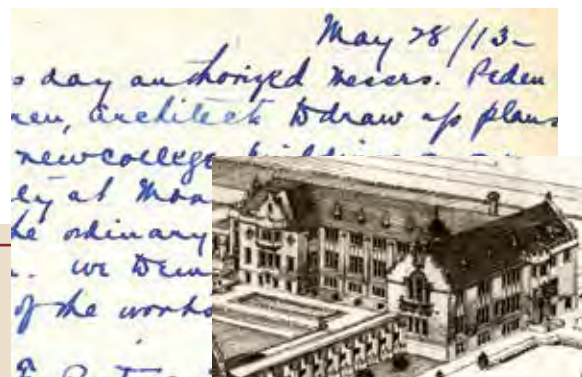 May 28/13-
s day authorized Messrs. Peden
ren, architects to draw up plans
new college
ly at
he ordinary
. we
of the works